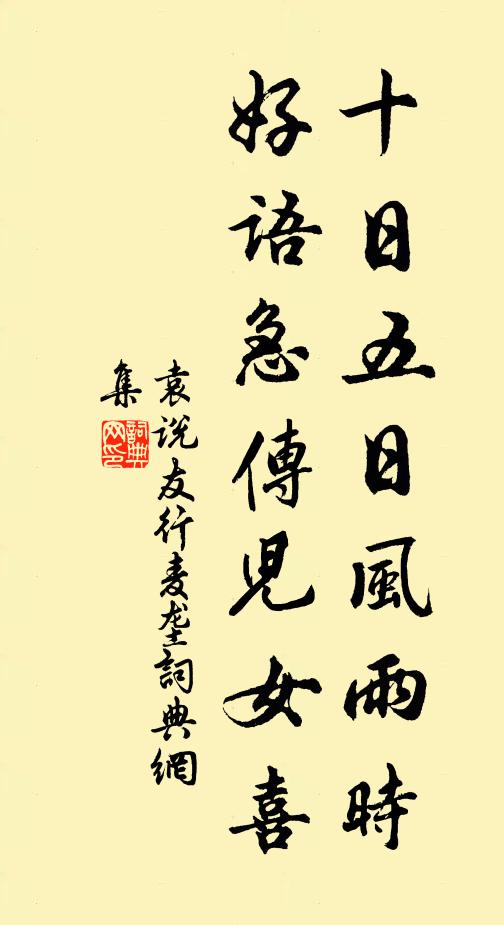 十日五日風雨時
好語急傳兒女喜
袁说友行麦垄詞典網
集
詞典网印